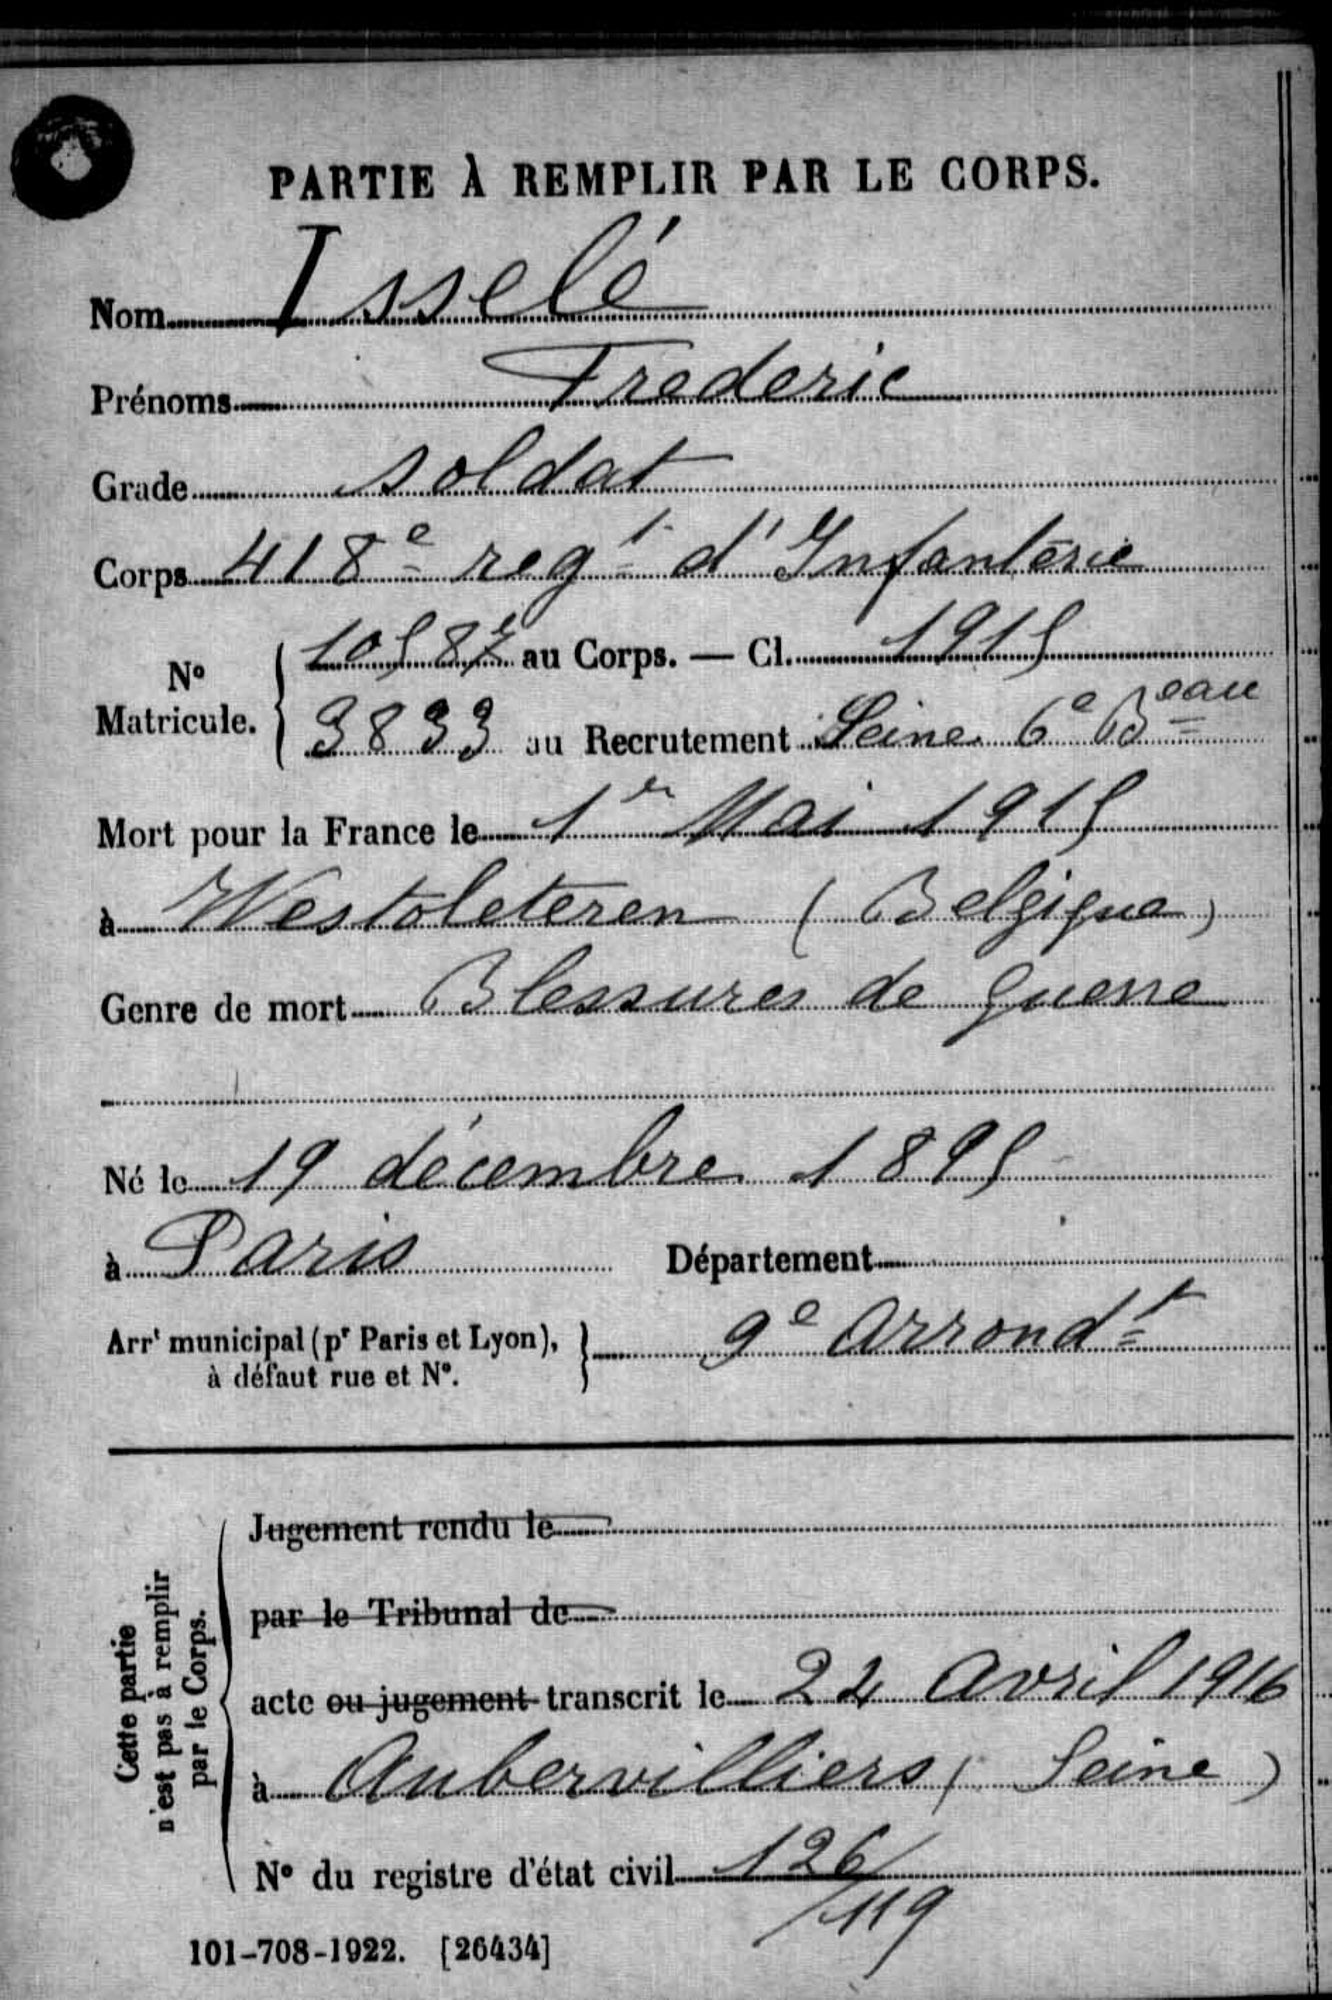 PARTIE À REMPLIR PAR LE CORPS.
Nom Isselé
Prénoms Frederic
Grade soldat
Corps 418e regt d'Infanterie
No Matricule. au Corps. — Cl. 1915
3833 au Recrutement Seine 6e Beau
Mort pour la France le 1er Mai 1915
à Westoleteren (Belgique)
Genre de mort Blessures de guerre
Né le 19 décembre 1895
à Paris Département
Arrt municipal (pr Paris et Lyon), 9e Arrondt
à défaut rue et No.
Cette partie n'est pas à remplir par le Corps.
Jugement rendu le
par le Tribunal de
acte ou jugement transcrit le 24 Avril 1916
à Aubervilliers (Seine)
No du registre d'état civil 126/119
101-708-1922. [26434]